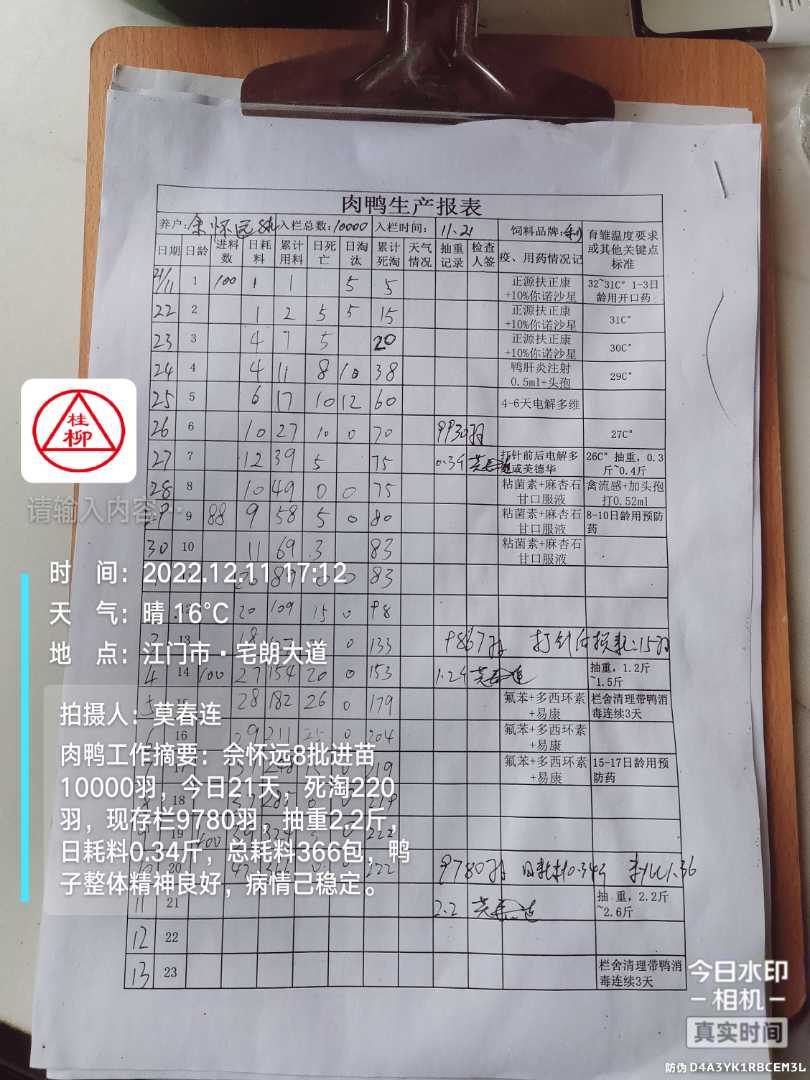 肉鸭生产报表
养户: 余怀远8批 入栏总数: 10000 入栏时间: 11.21 饲料品牌: 育雏温度要求或其他关键点标准
日期 日龄 进料数 日耗料 累计用料 日死亡 日淘汰 累计死淘 天气情况 抽重记录 检查人签 疫、用药情况记
21/11 1 100 1 1 5 5 正源扶正康+10%你诺沙星 32~31C° 1-3日龄用开口药
22 2 1 2 5 5 15 正源扶正康+10%你诺沙星 31C°
23 3 4 7 5 20 正源扶正康+10%你诺沙星 30C°
24 4 4 11 8 10 38 鸭肝炎注射0.5ml+头孢 29C°
25 5 6 17 10 12 60 4-6天电解多维
26 6 10 27 10 0 70 9930羽 27C°
27 7 12 39 5 75 0.34 莫春连 打针前后电解多维或美德华 26C° 抽重，0.3斤~0.4斤
28 8 10 49 0 0 75 粘菌素+麻杏石甘口服液 禽流感+加头孢打0.52ml
29 9 88 9 58 5 0 80 粘菌素+麻杏石甘口服液 8-10日龄用预防药
30 10 11 69 3 83 粘菌素+麻杏石甘口服液
0 83
20 109 15 0 98
3 13 18 0 133 9867羽 打针后损耗:15羽
4 14 100 27 154 20 0 153 1.24 莫春连 抽重，1.2斤~1.5斤
5 28 182 26 0 179 氟苯+多西环素+易康 栏舍清理带鸭消毒连续3天
16 29 211 25 0 204 氟苯+多西环素+易康
17 氟苯+多西环素+易康 15-17日龄用预防药
18
19 100 222
20 222 9780羽 日耗料0.34斤 料比1.36
11 21 2.2 莫春连 抽 重，2.2斤~2.6斤
12 22
13 23 栏舍清理带鸭消毒连续3天
桂
柳
请输入内容...
时 间: 2022.12.11 17:12
天 气: 晴 16℃
地 点: 江门市·宅朗大道
拍摄人: 莫春连
肉鸭工作摘要: 余怀远8批进苗
10000羽，今日21天，死淘220
羽，现存栏9780羽，抽重2.2斤，
日耗料0.34斤，总耗料366包，鸭
子整体精神良好，病情已稳定。
今日水印
-相机-
真实时间
防伪 D4A3YK1RBCEM3L